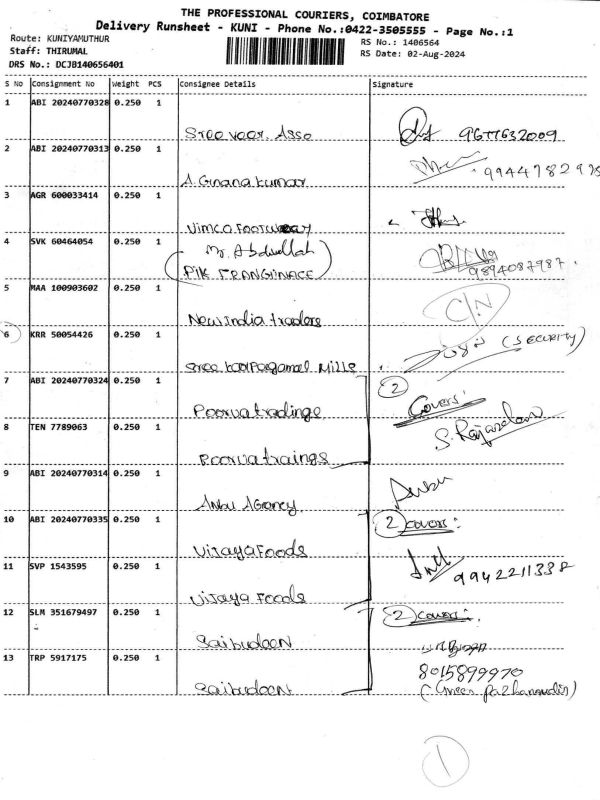 THE PROFESSIONAL COURIERS, COIMBATORE
Delivery Runsheet - KUNI - Phone No.:0422-3505555 - Page No.:1
Route: KUNIYAMUTHUR
RS No.: 1406564
Staff: THIRUMAL
RS Date: 02-Aug-2024
DRS No.: DCJB140656401
S No Consignment No Weight PCS Consignee Details Signature
1 ABI 20240770328 0.250 1
Sree veer. Asso 9677632009
2 ABI 20240770313 0.250 1
A. Gnana kumar
3 AGR 600033414 0.250 1
Vimco Footway
4 SVK 60464054 0.250 1
Mr. Abdullah
9894087987.
5 MAA 100903602 0.250 1
C/N
New india traders
6 KRR 50054426 0.250 1
(SECURITY)
Sree Mills
7 ABI 20240770324 0.250 1
2 Covers:
Poorva tradings
8 TEN 7789063 0.250 1
Poorva traings
9 ABI 20240770314 0.250 1
Anbu Agency
10 ABI 20240770335 0.250 1
2 covers:
Vijaya Foods
11 SVP 1543595 0.250 1
9942211338
Vijaya Foods
12 SLM 351679497 0.250 1
2 covers:
Saibudeen
13 TRP 5917175 0.250 1
8015899970
Saibudeen
1